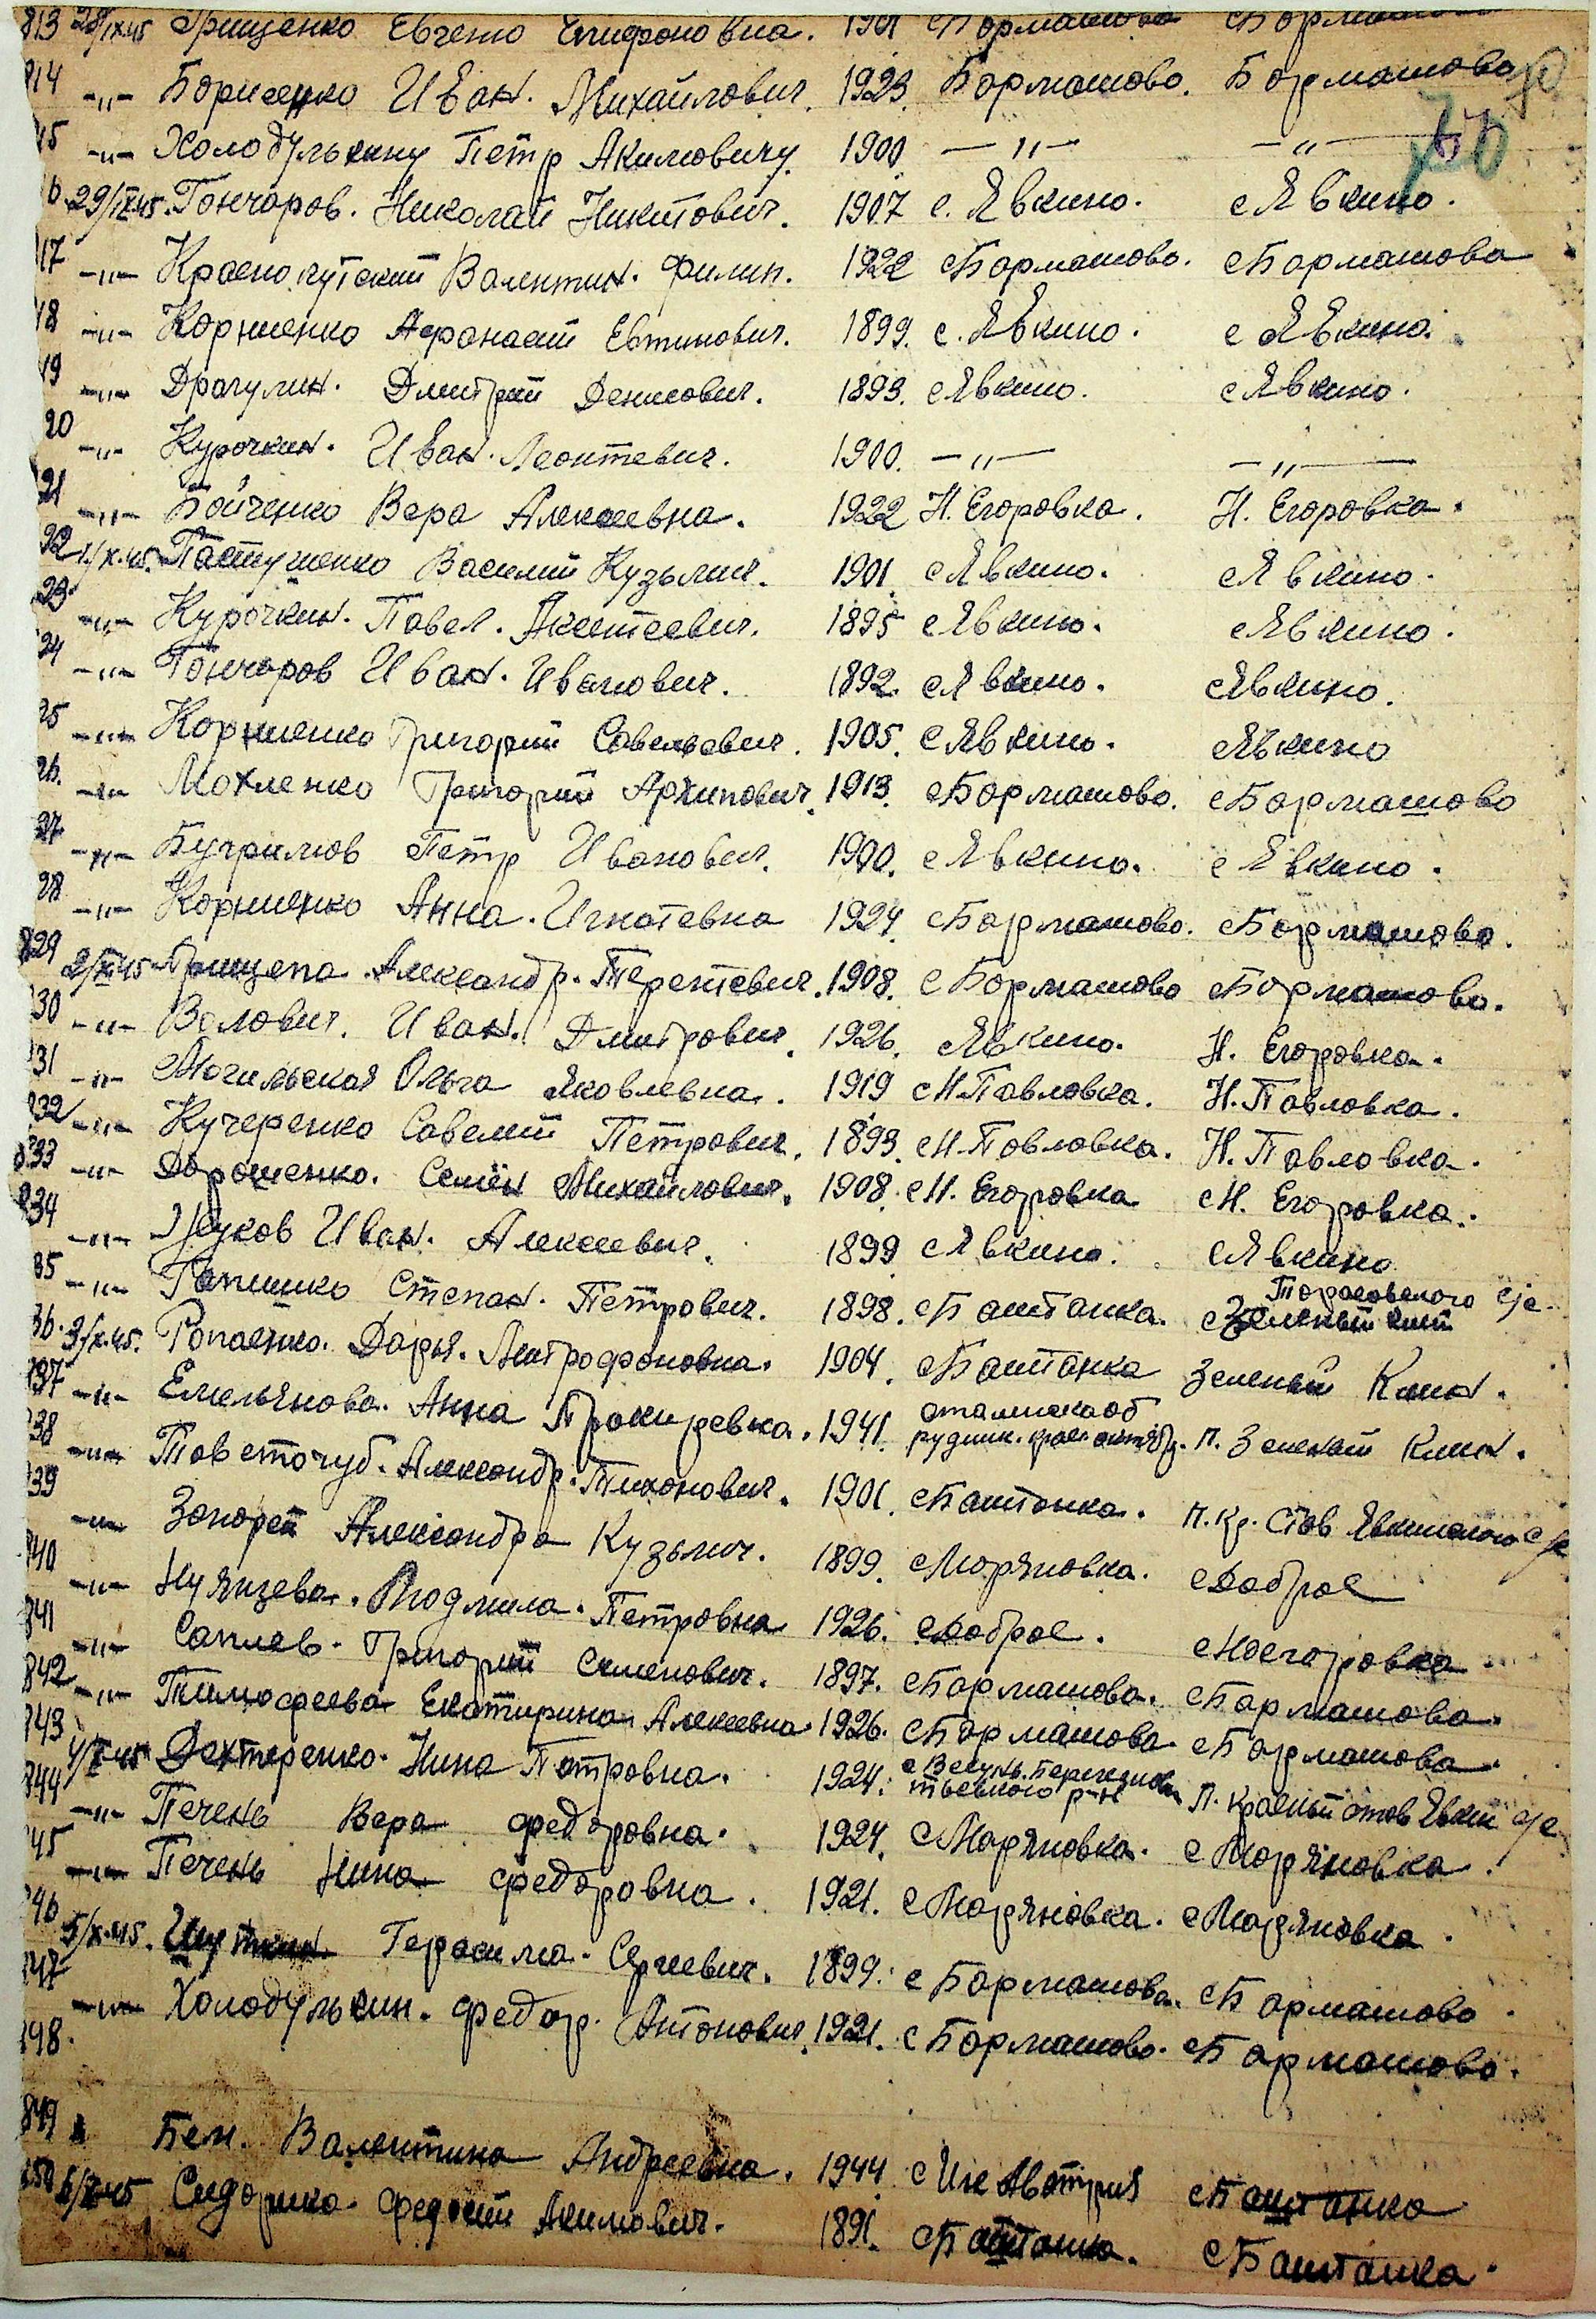 813 28/IX 45 Грищенко Евгено Епифоновна. 1901 с Бормашово с Бормашово
814 -"- Борисенко Иван. Михайлович. 1923. Бормашово. Бормашово
15 -"- Холодулькину Петр Акимовичу. 1900 -"- -"-
16 29/IX 45. Гончаров. Николай Никитович. 1907 с. Явкино. с Явкино.
17 -"- Краснокутский Валентин. Филип. 1922 с Бормашово. с Бормашово
18 -"- Корниенко Афонасий Евтинович. 1899. с. Явкино. с Явкино.
19 -"- Драгулин. Дмитрий Денисович. 1893. с Явкино. с Явкино.
20 -"- Курочкин. Иван. Леонтевич. 1900. -"- -"-
21 -"- Бойченко Вера Алексеевна. 1922 Н. Егоровка. Н. Егоровка.
22 1/X.45. Пастушенко Василий Кузьмич. 1901 с Явкино. с Явкино.
23 -"- Курочкин. Павел. Акентеевич. 1895 с Явкино. с Явкино.
24 -"- Гончоров Иван. Иванович. 1892. с Явкино. с Явкино.
25 -"- Корниенко Григорий Савельевич. 1905. с Явкино. с Явкино
26. -"- Мохленко Григорий Архипович. 1913. с Бормашово. с Бормашово
27. -"- Бугримов Петр Иванович. 1900. с Явкино. с Явкино.
28 -"- Корниенко Анна. Игнотевна 1924. с Бормашово. с Бормашово.
829 2/X 45 Грищепа. Александр. Терентевич. 1908. с Бормашово с Бормашово.
830 -"- Волович. Иван. Дмитрович. 1926. с Явкино. Н. Егоровка.
831 -"- Могильская Ольга Яковлевна. 1919 с Н.Павловка. Н.Павловка.
832 -"- Кучеренко Савелий Петрович. 1893. с Н.Повловка. Н.Павловка.
833 -"- Дорошенко. Семён Михайлович. 1908. с Н. Егоровка с Н. Егоровка.
834 -"- Жуков Иван. Алексеевич. 1899 с Явкино. с Явкино
35 -"- Гапишко Степан. Петрович. 1898. с Баштанка. Торосовского с/с. с Зеленый клин
36. 3/X.45. Ропаенко. Дарья. Митрофоновна. 1904. с Баштанка Зеленый Клин.
837 -"- Емельянова. Анна Прокиревка. 1941. сталинска об рудник. крас. октябр. п. Зеленый Клин.
838 -"- Товсточуб. Александр. Тихонович. 1901. с Баштонка. п. Кр. Став Явкинского с/с
839 -"- Запорен Александра Кузьмич. 1899. с Моряновка. с Доброе
840 -"- Нуянзева. Людмила. Петровна 1926. с Доброе. с Ноегоровка
841 -"- Саплев. Григорий Семенович. 1897. с Бормашова. с Бормашова.
842 -"- Тимофеева Екатирина Алексеевна 1926. с Бормашова. с Бормашова.
843 4/X 45 Дехтеренко. Нина Петровна. 1924. с Весулн. Березнова тыевского р-н П. красный став Явкин с/с
844 -"- Печень Вера Федоровна. 1924. с Моряновка. с Моряновка.
45 -"- Печень Нина Федоровна. 1921. с Моряновка. с Моряновка.
46 5/X.45. Герасима. Сергеевич. 1899. с Бормашова. с Бормашово.
847 -"- Холодулькин. Федор. Антонович. 1921. с Бормашово. с Бормашово.
848.
849 Бен. Валентина Андреевна. 1944 с Австрия с Баштанка
850 6/X 45 Сидорика Федосий Акимович. 1891. с Баштанка. с Баштанка.